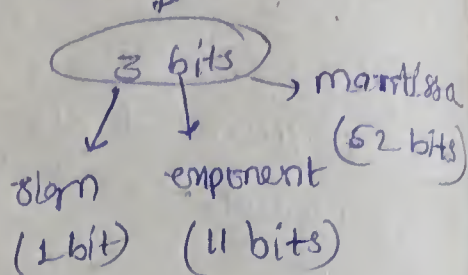 3 bits
mantissa
(52 bits)
sign exponent
(1 bit) (11 bits)